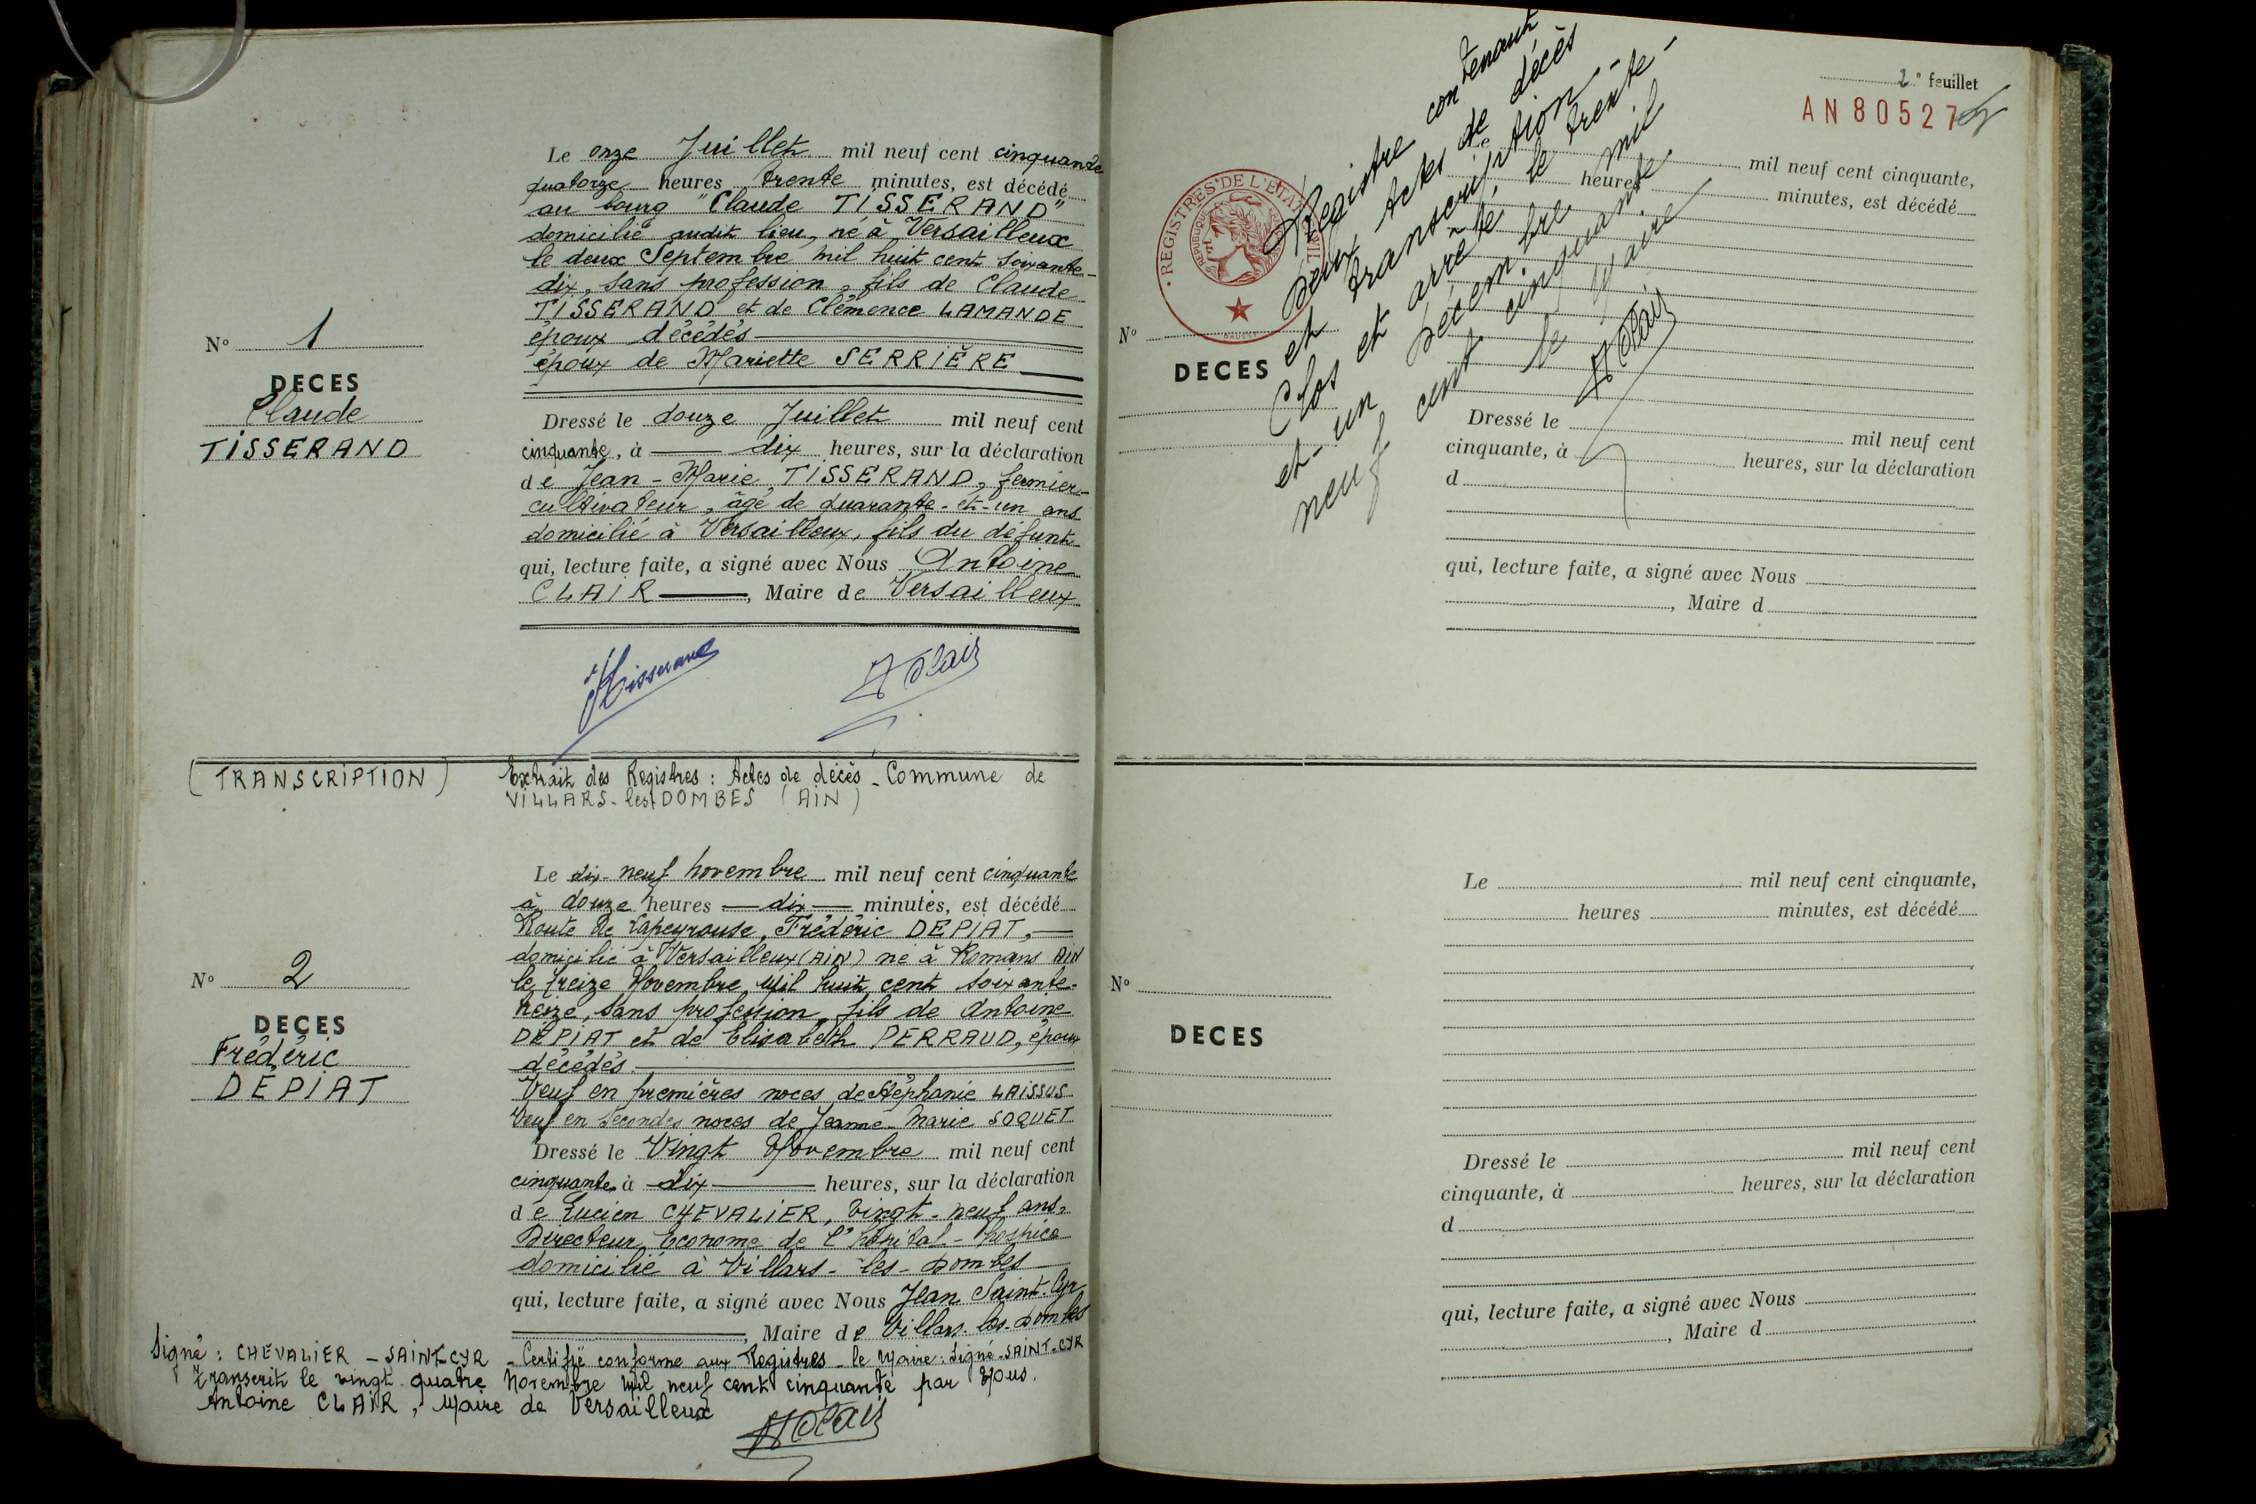 N° 1
DECES
Claude
TISSERAND
Le onze Juillet mil neuf cent cinquante
quatorze heures trente minutes, est décédé
au bourg "Claude TISSERAND"
domicilié audit lieu, né à Versailleux
le deux Septembre mil huit cent soixante-
dix, sans profession, fils de Claude
TISSERAND et de Clémence LAMANDE
époux décédés
époux de Mariette SERRIÈRE
Dressé le douze Juillet mil neuf cent
cinquante, à dix heures, sur la déclaration
de Jean-Marie TISSERAND, fermier-
cultivateur, âgé de quarante-et-un ans
domicilié à Versailleux, fils du défunt
qui, lecture faite, a signé avec Nous Antoine
CLAIR, Maire de Versailleux
Tisserand
A Clair
(TRANSCRIPTION)
Extrait des Registres : Actes de décès - Commune de
VILLARS-les-DOMBES (AIN)
N° 2
DECES
Frédéric
DÉPIAT
Le dix-neuf novembre mil neuf cent cinquante
à douze heures dix minutes, est décédé
Route de Lapeyrouse, Frédéric DÉPIAT,
domicilié à Versailleux (AIN) né à Romans AIN
le treize Novembre mil huit cent soixante-
treize, sans profession, fils de Antoine
DÉPIAT et de Elisabeth PERRAUD, époux
décédés.
Veuf en premières noces de Stéphanie LAISSUS
Veuf en secondes noces de Jeanne-Marie SOQUET
Dressé le Vingt Novembre mil neuf cent
cinquante à dix heures, sur la déclaration
de Lucien CHEVALIER, vingt-neuf ans,
Directeur Econome de l'hôpital-hospice
domicilié à Villars-les-Dombes
qui, lecture faite, a signé avec Nous Jean Saint-Cyr
, Maire de Villars-les-Dombes
Signé : CHEVALIER - SAINT-CYR - Certifié conforme aux Registres - le Maire : Signé - SAINT-CYR
Transcrit le vingt quatre Novembre mil neuf cent cinquante par Nous.
Antoine CLAIR, Maire de Versailleux
A Clair
2e feuillet
AN 80527
REGISTRES DE L'ETAT CIVIL
Registre contenant
Deux Actes de décès
et transcription -
Clos et arrêté, le trente-
et-un Décembre mil
neuf cent cinquante.
le Maire
A Clair
Le mil neuf cent cinquante,
heures minutes, est décédé
N°
DECES
Dressé le mil neuf cent
cinquante, à heures, sur la déclaration
d
qui, lecture faite, a signé avec Nous
, Maire d
Le mil neuf cent cinquante,
heures minutes, est décédé
N°
DECES
Dressé le mil neuf cent
cinquante, à heures, sur la déclaration
d
qui, lecture faite, a signé avec Nous
, Maire d